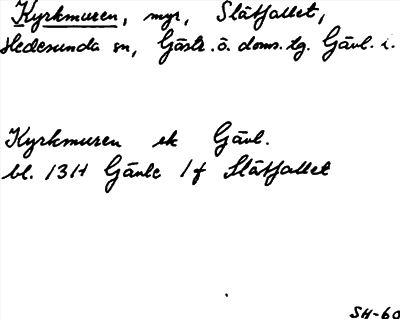 Kyrkmuren, myr, Slätfallet,
Hedesunda sn, Gästr. ö. doms. tg. Gävl. i.
Kyrkmuren ek Gävl.
bl. 13H Gävle 1f Slätfallet
SH-60